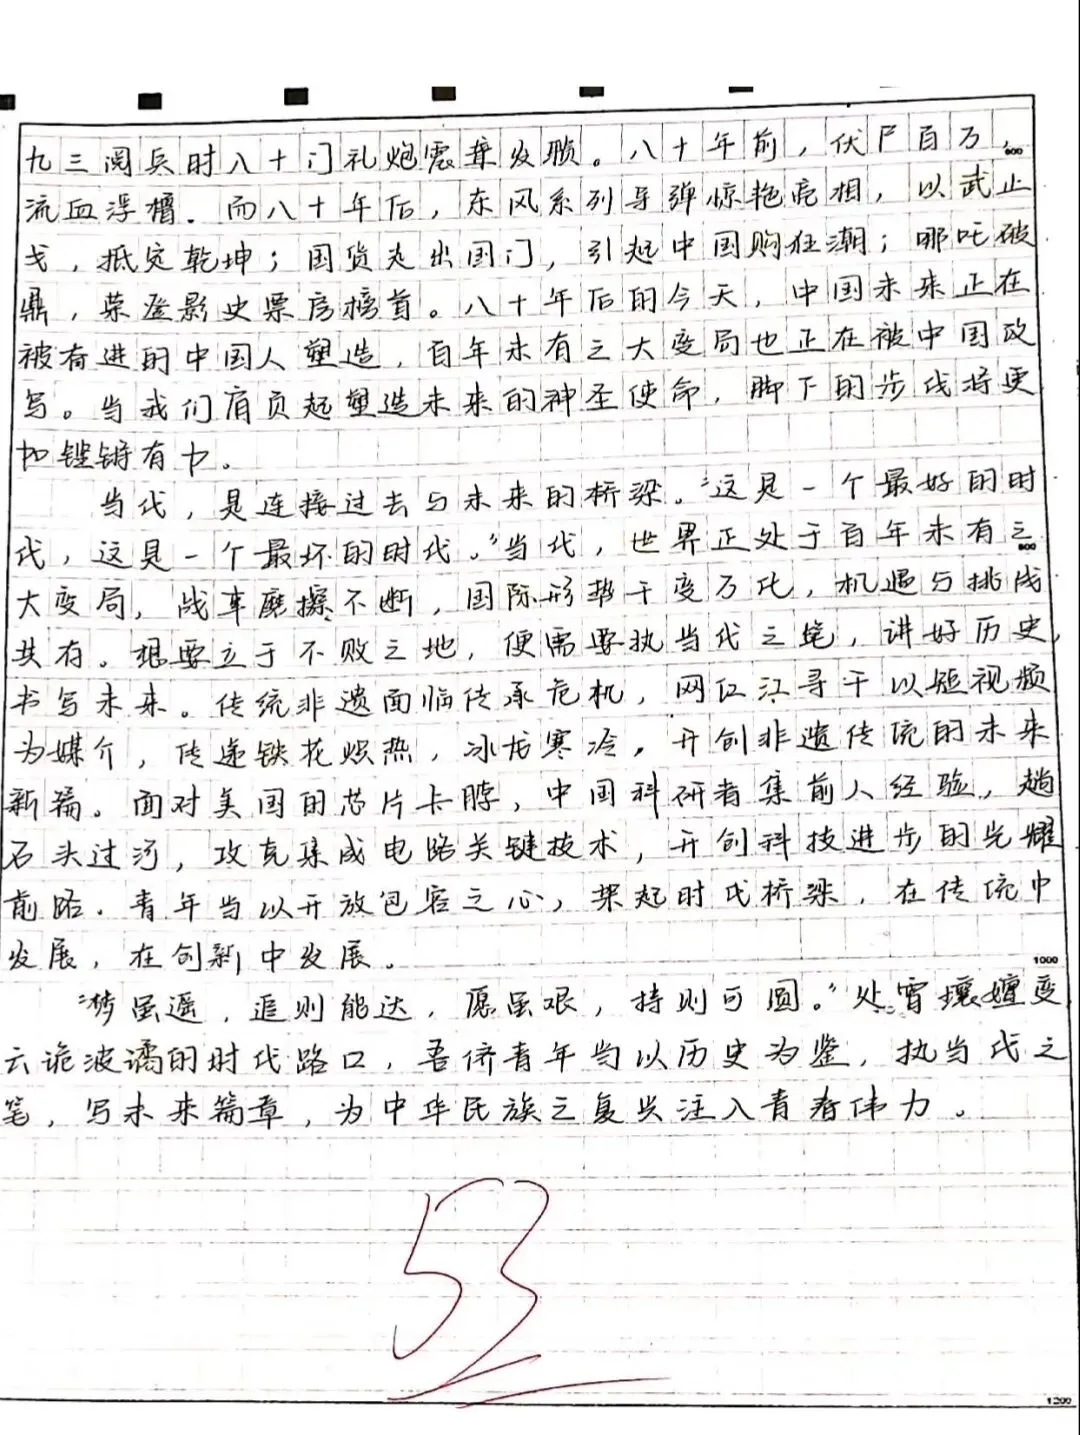 九三阅兵时八十门礼炮震聋发聩。八十年前，伏尸百万，
600
流血浮橹。而八十年后，东风系列导弹惊艳亮相，以武止
戈，抵定乾坤；国货走出国门，引起中国购狂潮；哪吒破
鼎，荣登影史票房榜首。八十年后的今天，中国未来正在
被奋进的中国人塑造，百年未有之大变局也正在被中国改
写。当我们肩负起塑造未来的神圣使命，脚下的步伐将更
加铿锵有力。
当代，是连接过去与未来的桥梁。“这是一个最好的时
代，这是一个最坏的时代。”当代，世界正处于百年未有之
800
大变局，战争磨擦不断，国际形势千变万化，机遇与挑战
共存。想要立于不败之地，便需要执当代之笔，讲好历史，
书写未来。传统非遗面临传承危机，网红江寻千以短视频
为媒介，传递铁花炽热，冰龙寒冷，开创非遗传统的未来
新篇。面对美国的芯片卡脖，中国科研者集前人经验，趟
石头过河，攻克集成电路关键技术，开创科技进步的光耀
前路。青年当以开放包容之心，架起时代桥梁，在传统中
发展，在创新中发展。
1000
“梦虽遥，追则能达，愿虽艰，持则可圆。”处霄壤嬗变
云诡波谲的时代路口，吾侪青年当以历史为鉴，执当代之
笔，写未来篇章，为中华民族之复兴注入青春伟力。
53
1200